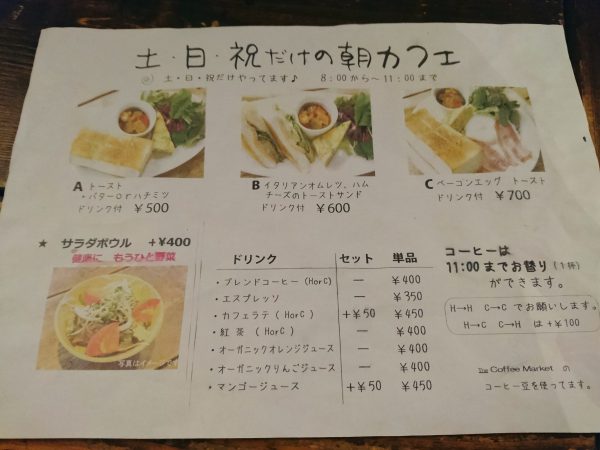 土・日・祝だけの朝カフェ
土・日・祝だけやってます♪ 8:00から〜11:00まで
A トースト
・バターorハチミツ
ドリンク付 ¥500
B イタリアンオムレツ、ハム
チーズのトーストサンド
ドリンク付 ¥600
C ベーゴンエッグ トースト
ドリンク付 ¥700
★ サラダボウル +¥400
健康に もうひと野菜
写真はイメージです
ドリンク セット 単品
・ブレンドコーヒー(HorC) — ¥400
・エスプレッソ — ¥350
・カフェラテ(HorC) +¥50 ¥450
・紅茶(HorC) — ¥400
・オーガニックオレンジジュース — ¥400
・オーガニックりんごジュース — ¥400
・マンゴージュース +¥50 ¥450
コーヒーは
11:00までお替り(1杯)
ができます。
H→H C→C でお願いします。
H→C C→H は+¥100
The Coffee Market の
コーヒー豆を使ってます。